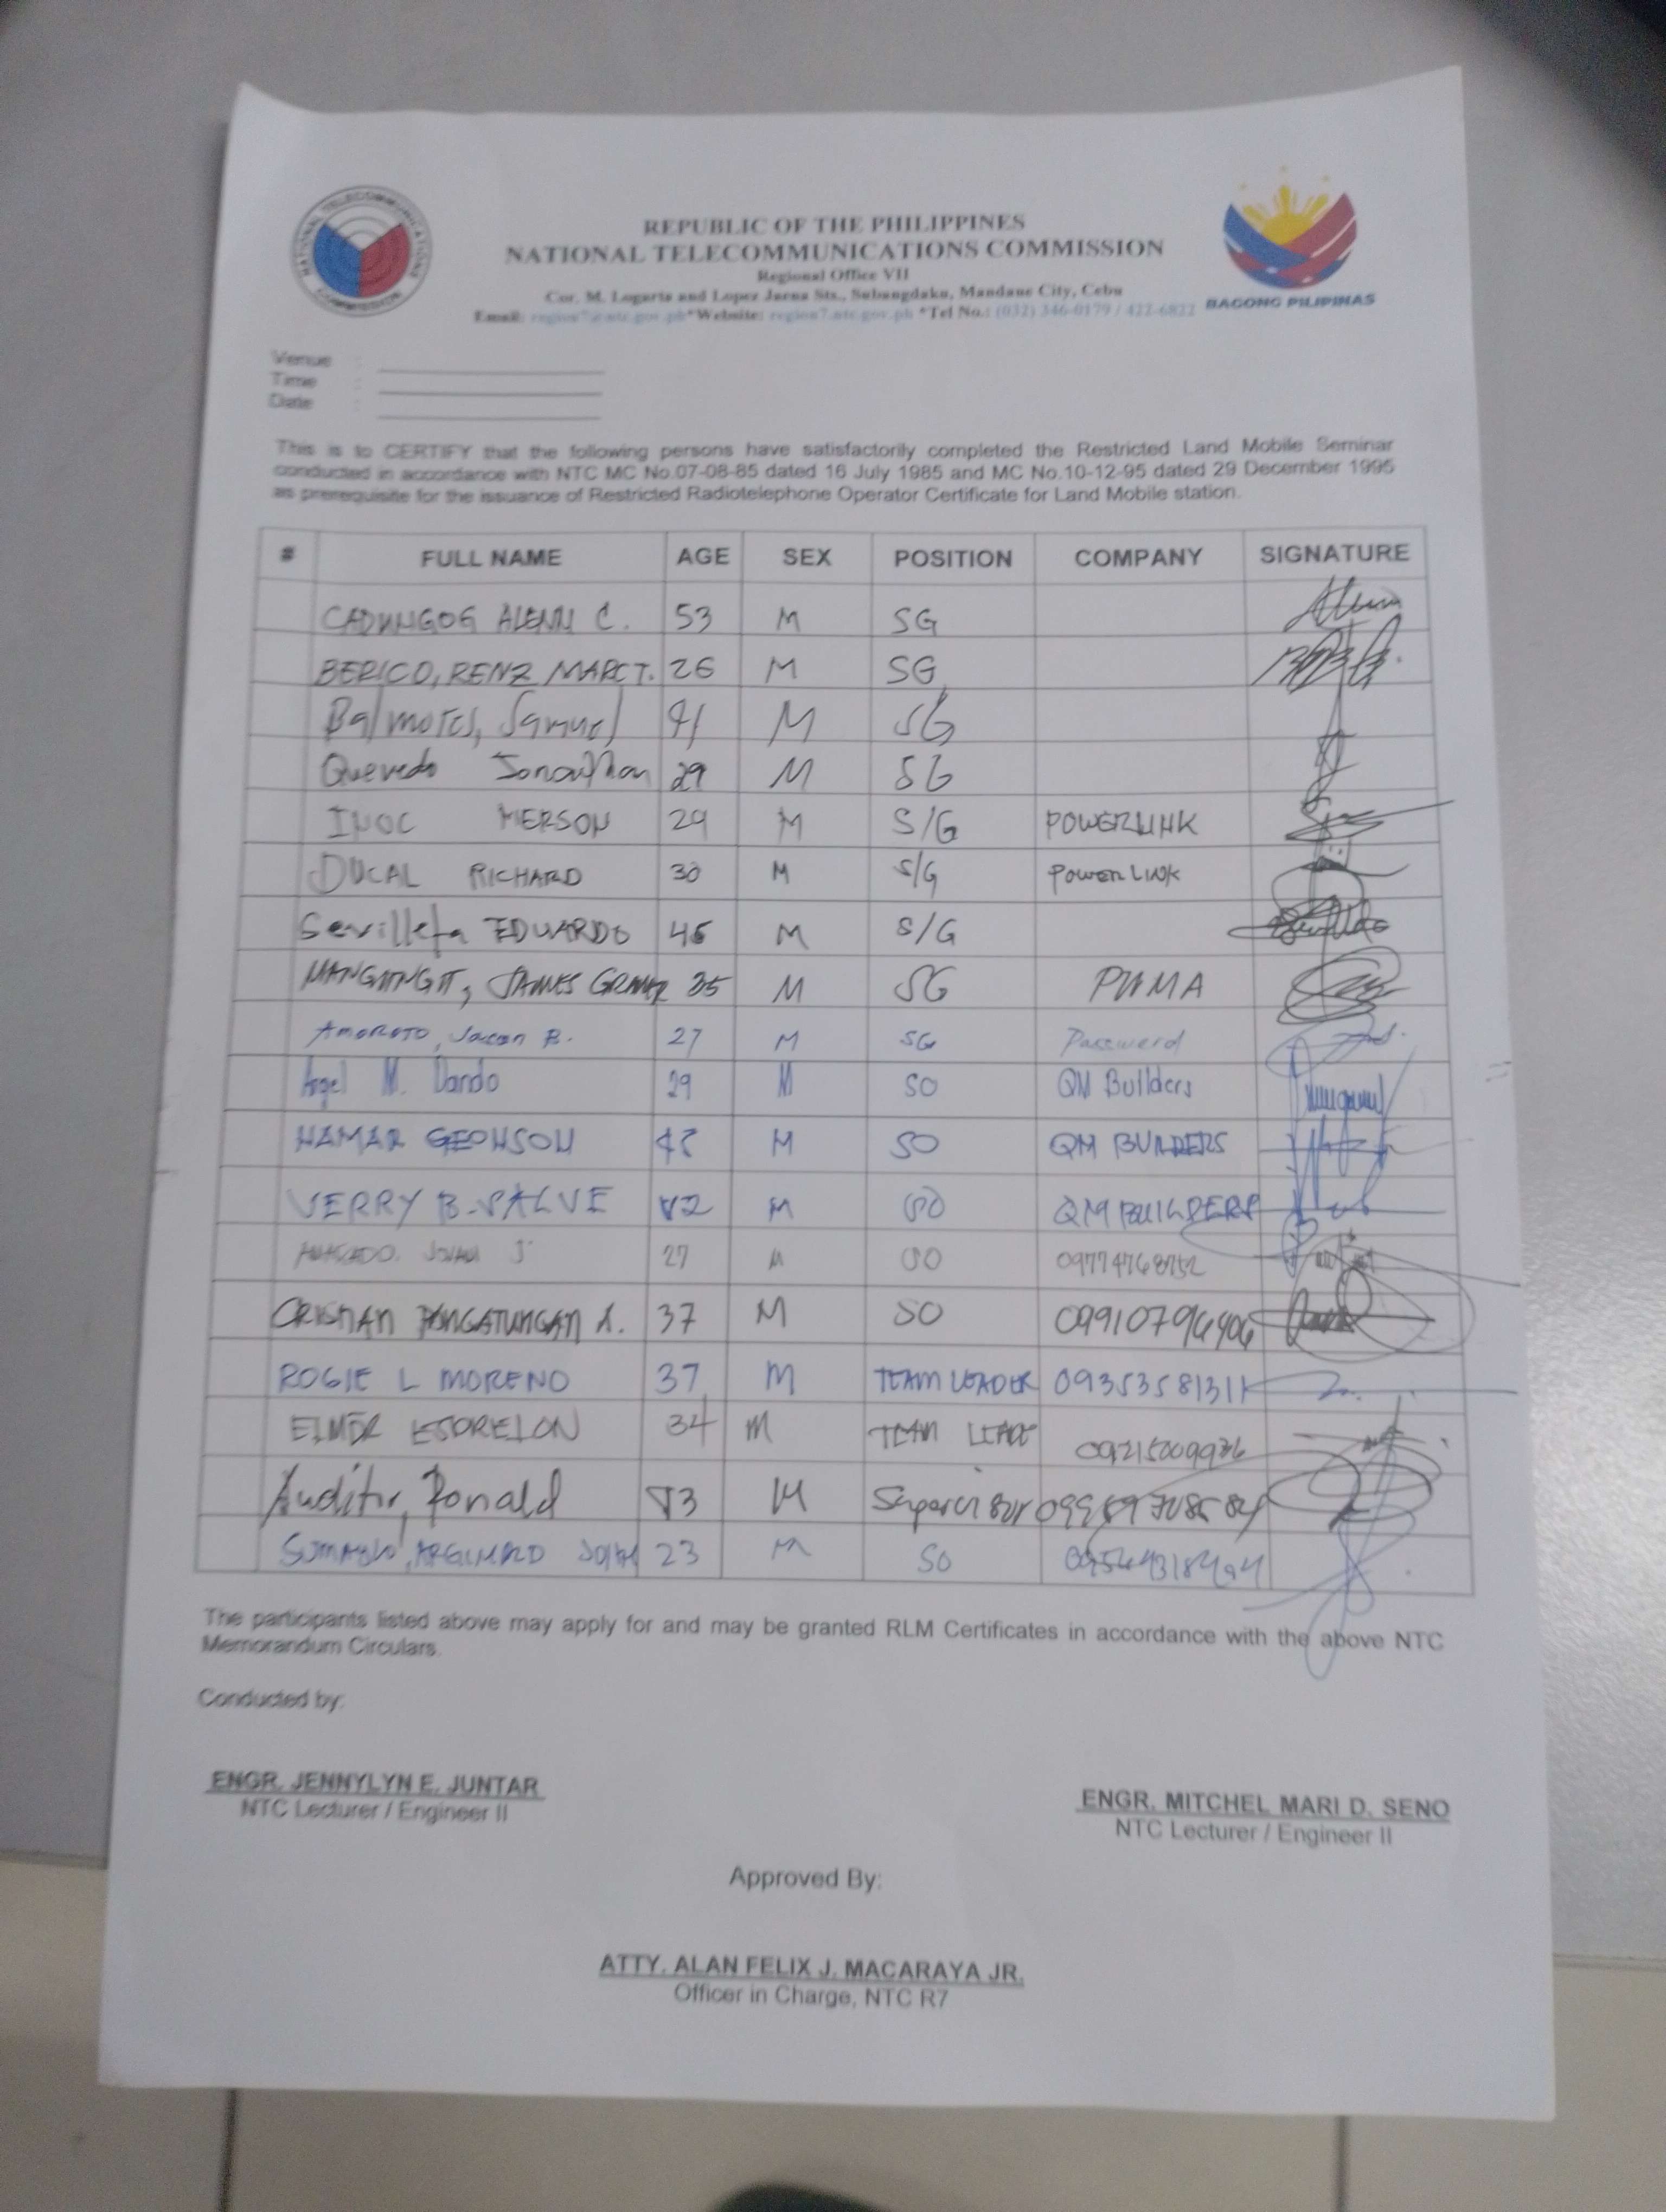 NATIONAL TELECOMMUNICATIONS COMMISSION
REPUBLIC OF THE PHILIPPINES
NATIONAL TELECOMMUNICATIONS COMMISSION
Regional Office VII
Cor. M. Logarta and Lopez Jaena Sts., Subangdaku, Mandaue City, Cebu
Email: region7@ntc.gov.ph*Website: region7.ntc.gov.ph *Tel No.: (032) 346-0179 / 422-6822
BAGONG PILIPINAS
Venue :
Time :
Date :
This is to CERTIFY that the following persons have satisfactorily completed the Restricted Land Mobile Seminar
conducted in accordance with NTC MC No.07-08-85 dated 16 July 1985 and MC No.10-12-95 dated 29 December 1995
as prerequisite for the issuance of Restricted Radiotelephone Operator Certificate for Land Mobile station.
# FULL NAME AGE SEX POSITION COMPANY SIGNATURE
CADUNGOG ALENN C. 53 M SG
BERICO, RENZ MARC T. 26 M SG
Balmores, Samuel 41 M SG
Quevedo Jonathan 29 M SG
INOC MERSON 29 M S/G POWERLINK
DUCAL RICHARD 30 M S/G POWERLINK
Sevilleta EDUARDO 45 M S/G
JAMES 35 M SG
27 M SG Password
Angel M. Dardo 29 M SO QM Builders
HAMAR GEOHSON M SO QM BUILDERS
JERRY B. SALVE 42 M SO QM BUILDERS
27 M SO
CRISTIAN 37 M SO
ROGIE L MORENO 37 M TEAM LEADER
ELMER 34 M TEAM
Auditor, Ronald M Supervisor
23 M SO
The participants listed above may apply for and may be granted RLM Certificates in accordance with the above NTC
Memorandum Circulars.
Conducted by:
ENGR. JENNYLYN E. JUNTAR
NTC Lecturer / Engineer II
ENGR. MITCHEL MARI D. SENO
NTC Lecturer / Engineer II
Approved By:
ATTY. ALAN FELIX J. MACARAYA JR.
Officer in Charge, NTC R7